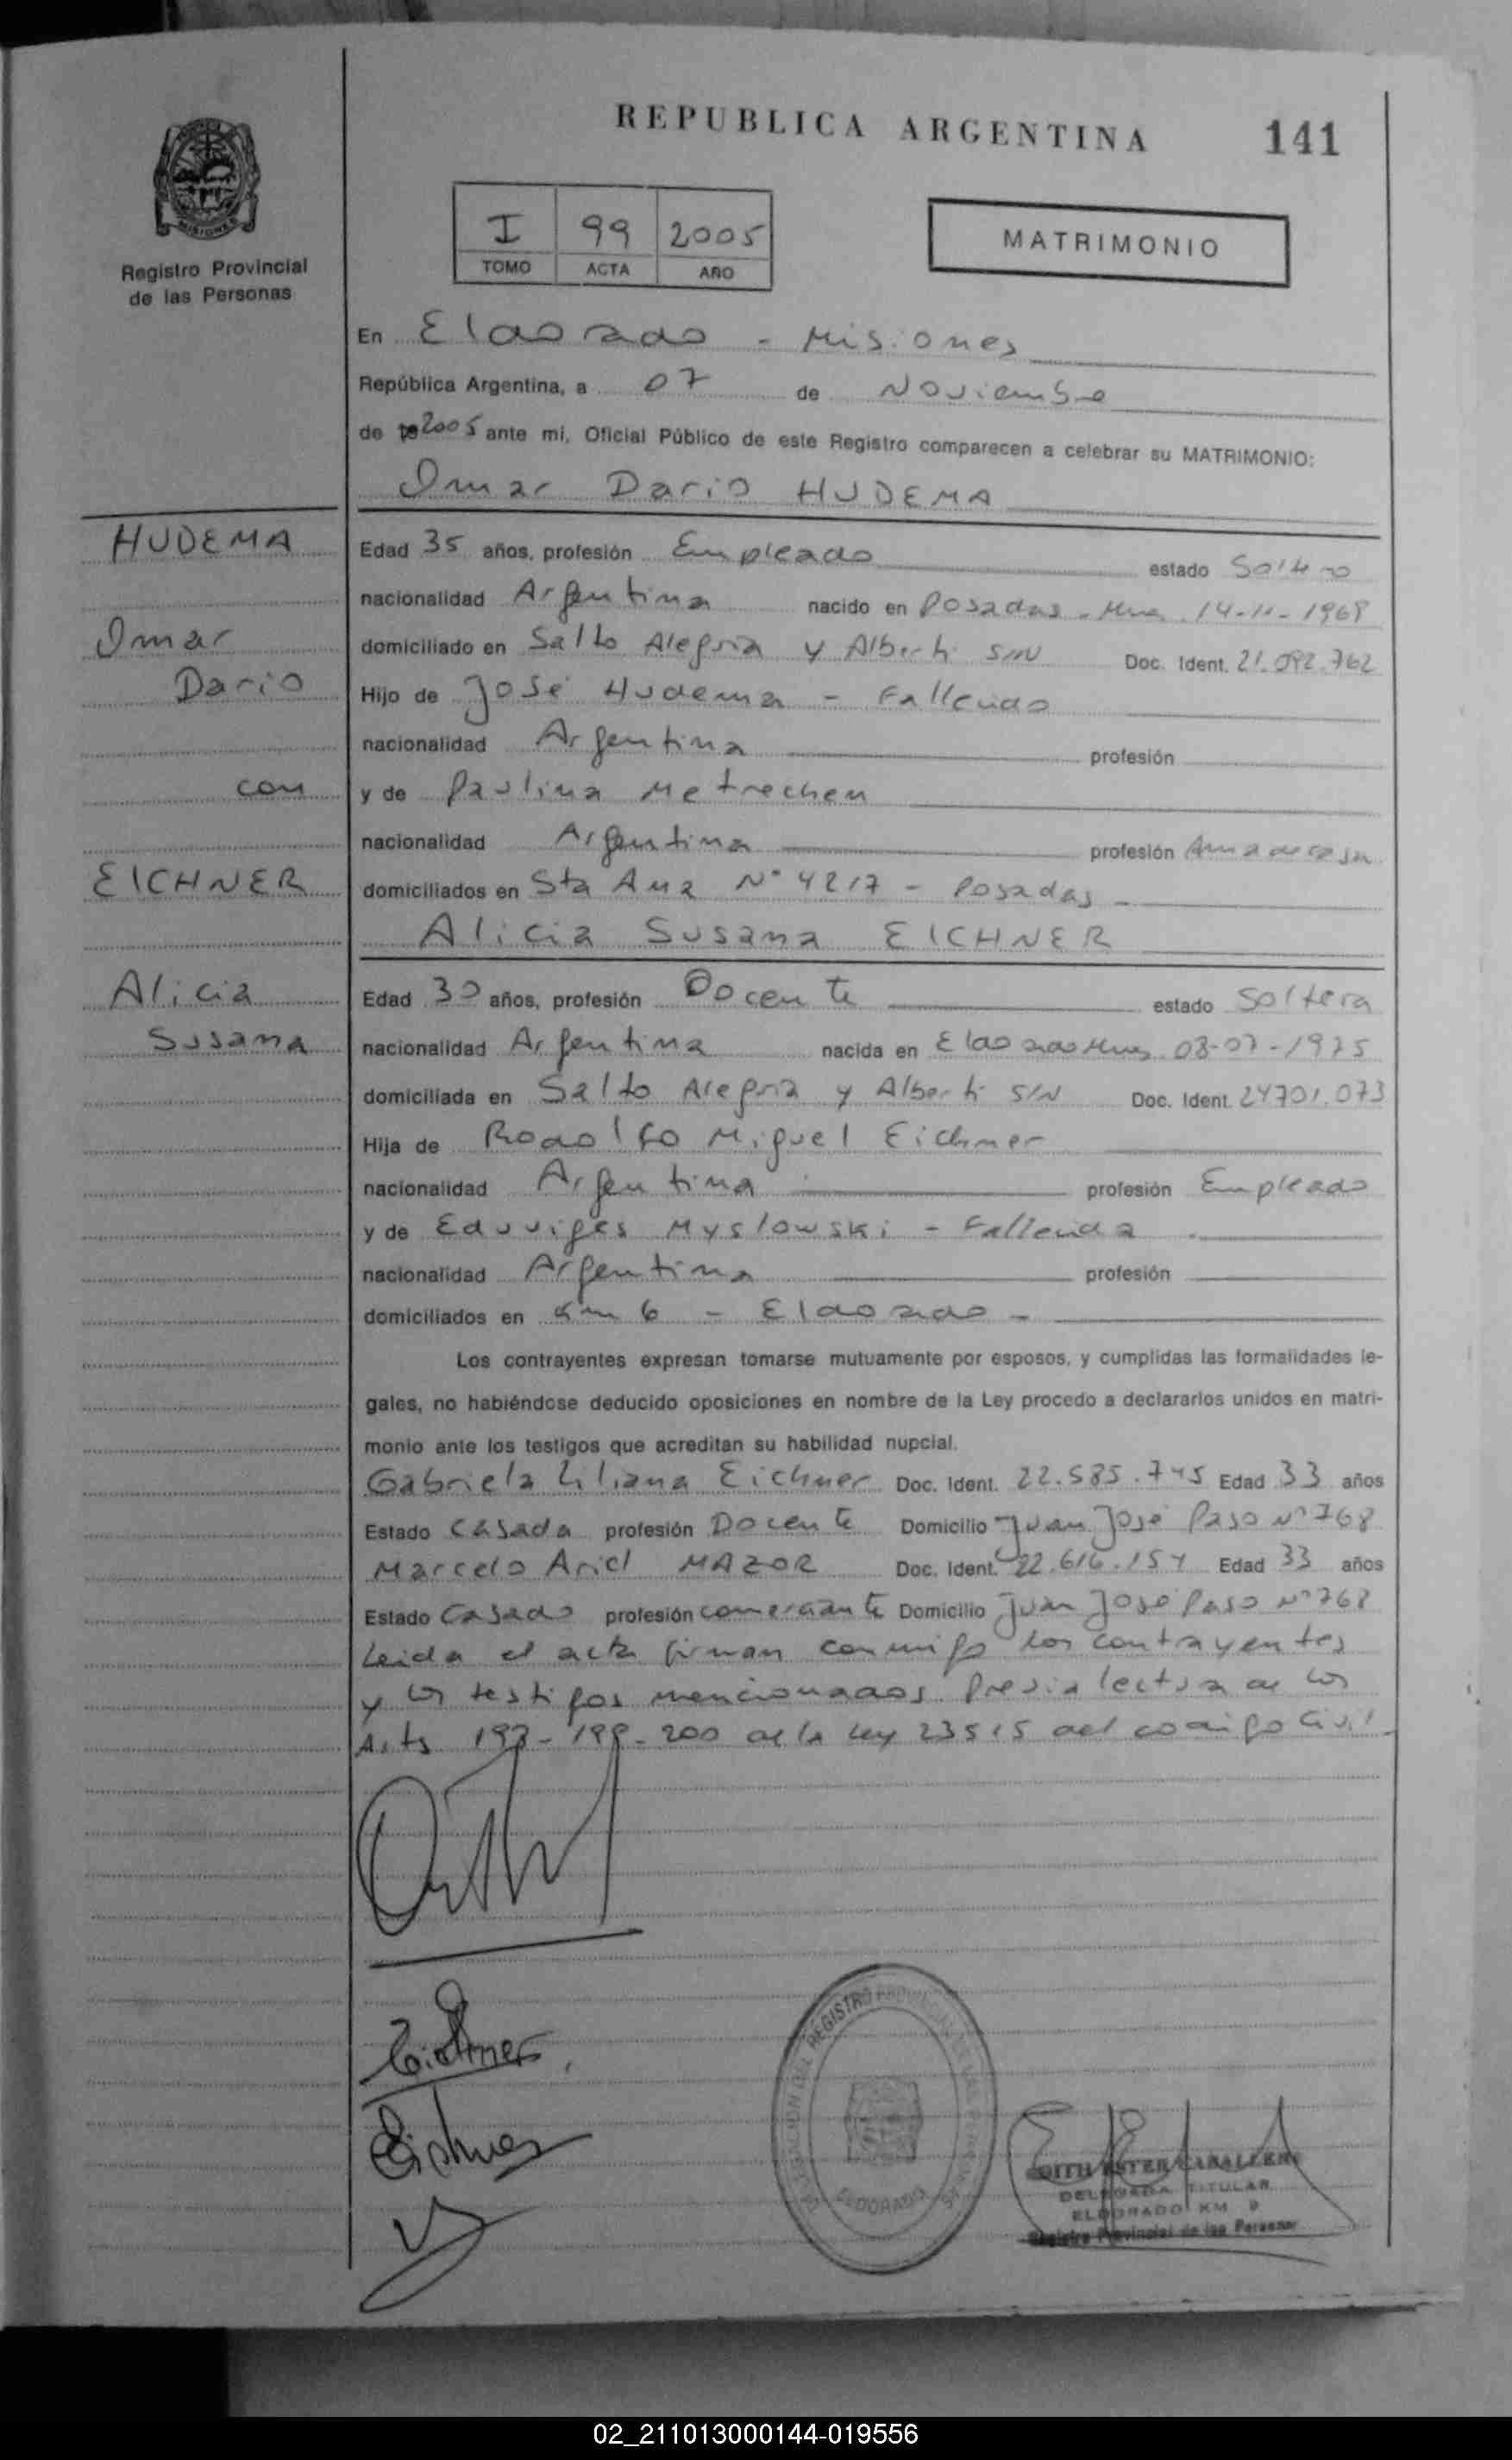 REPUBLICA ARGENTINA
141
MISIONES
Registro Provincial
de las Personas
I 99 2005
TOMO ACTA AÑO
MATRIMONIO
En Eldorado - Misiones
República Argentina, a 07 de Noviembre
de 2005 ante mi, Oficial Público de este Registro comparecen a celebrar su MATRIMONIO:
Omar Dario HUDEMA
HUDEMA
Omar
Dario
con
EICHNER
Alicia
Susana
Edad 35 años, profesión Empleado estado Soltero
nacionalidad Argentina nacido en Posadas - Mnes 14-11-1969
domiciliado en Salto Alegria y Alberti S/N Doc. Ident. 21.092.762
Hijo de José Hudema - Fallecido
nacionalidad Argentina profesión
y de Paulina Metrechen
nacionalidad Argentina profesión Ama de casa
domiciliados en Sta Ana N° 4217 - Posadas -
Alicia Susana EICHNER
Edad 30 años, profesión Docente estado Soltera
nacionalidad Argentina nacida en Eldorado Mnes 03-07-1975
domiciliada en Salto Alegria y Alberti S/N Doc. Ident. 24701.073
Hija de Rodolfo Miguel Eichner
nacionalidad Argentina profesión Empleado
y de Eduviges Myslowski - Fallecida
nacionalidad Argentina profesión
domiciliados en Km 6 - Eldorado -
Los contrayentes expresan tomarse mutuamente por esposos, y cumplidas las formalidades le-
gales, no habiéndose deducido oposiciones en nombre de la Ley procedo a declararlos unidos en matri-
monio ante los testigos que acreditan su habilidad nupcial.
Gabriela Liliana Eichner Doc. Ident. 22.585.745 Edad 33 años
Estado Casada profesión Docente Domicilio Juan José Paso N° 768
Marcelo Ariel MAZOR Doc. Ident. 22.616.154 Edad 33 años
Estado Casado profesión comerciante Domicilio Juan José Paso N° 768
Leida el acta firman conmigo los contrayentes
y los testigos mencionados. Previa lectura de los
Arts 198-199-200 de la Ley 23515 del codigo Civil
Eichner
Eichner
REGISTRO
ELDORADO
EDITH ESTER CABALLERO
DELEGADA TITULAR
ELDORADO KM 9
Registro Provincial de las Personas
02_211013000144-019556